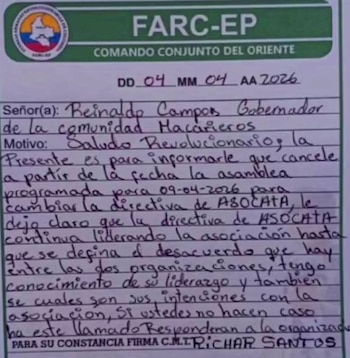 FARC-EP
COMANDO CONJUNTO DEL ORIENTE
DD 04 MM 04 AA 2026
Señor(a): Reinaldo Campos Gobernador
de la comunidad Macañeros
Motivo: Saludo Revolucionario, la
Presente es para informarle que cancele
a partir de la fecha la asamblea
programada para 09-04-2026 para
cambiar la directiva de ASOCATA, le
dejo claro que la directiva de ASOCATA
continua liderando la asociación hasta
que se defina el desacuerdo que hay
entre las dos organizaciones, tengo
conocimiento de su liderazgo y también
se cuales son sus intenciones con la
asociación, Si ustedes no hacen caso
ha este llamado Responderan a la organización
PARA SU CONSTANCIA FIRMA C.M.T. RICHAR SANTOS